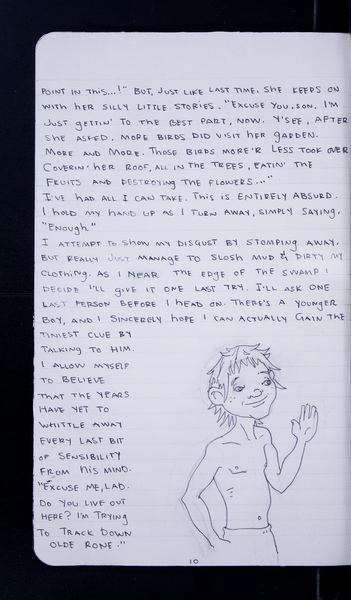 POINT IN THIS...!" BUT, JUST LIKE LAST TIME, SHE KEEPS ON
WITH HER SILLY LITTLE STORIES. "EXCUSE YOU, SON. I'M
JUST GETTIN' TO THE BEST PART, NOW. Y'SEE, AFTER
SHE ASKED, MORE BIRDS DID VISIT HER GARDEN.
MORE AND MORE. THOSE BIRDS MORE'R LESS TOOK OVER
COVERIN' HER ROOF, ALL IN THE TREES, EATIN' THE
FRUITS AND DESTROYING THE FLOWERS..."
I'VE HAD ALL I CAN TAKE. THIS IS ENTIRELY ABSURD.
I HOLD MY HAND UP AS I TURN AWAY, SIMPLY SAYING,
"ENOUGH"
I ATTEMPT TO SHOW MY DISGUST BY STOMPING AWAY,
BUT REALLY JUST MANAGE TO SLOSH MUD & DIRTY MY
CLOTHING. AS I NEAR THE EDGE OF THE SWAMP I
DECIDE I'LL GIVE IT ONE LAST TRY. I'LL ASK ONE
LAST PERSON BEFORE I HEAD ON. THERE'S A YOUNGER
BOY, AND I SINCERELY HOPE I CAN ACTUALLY GAIN THE
TINIEST CLUE BY
TALKING TO HIM.
I ALLOW MYSELF
TO BELIEVE
THAT THE YEARS
HAVE YET TO
WHITTLE AWAY
EVERY LAST BIT
OF SENSIBILITY
FROM HIS MIND.
"EXCUSE ME, LAD.
DO YOU LIVE OUT
HERE? I'M TRYING
TO TRACK DOWN
OLDE RONE."
10